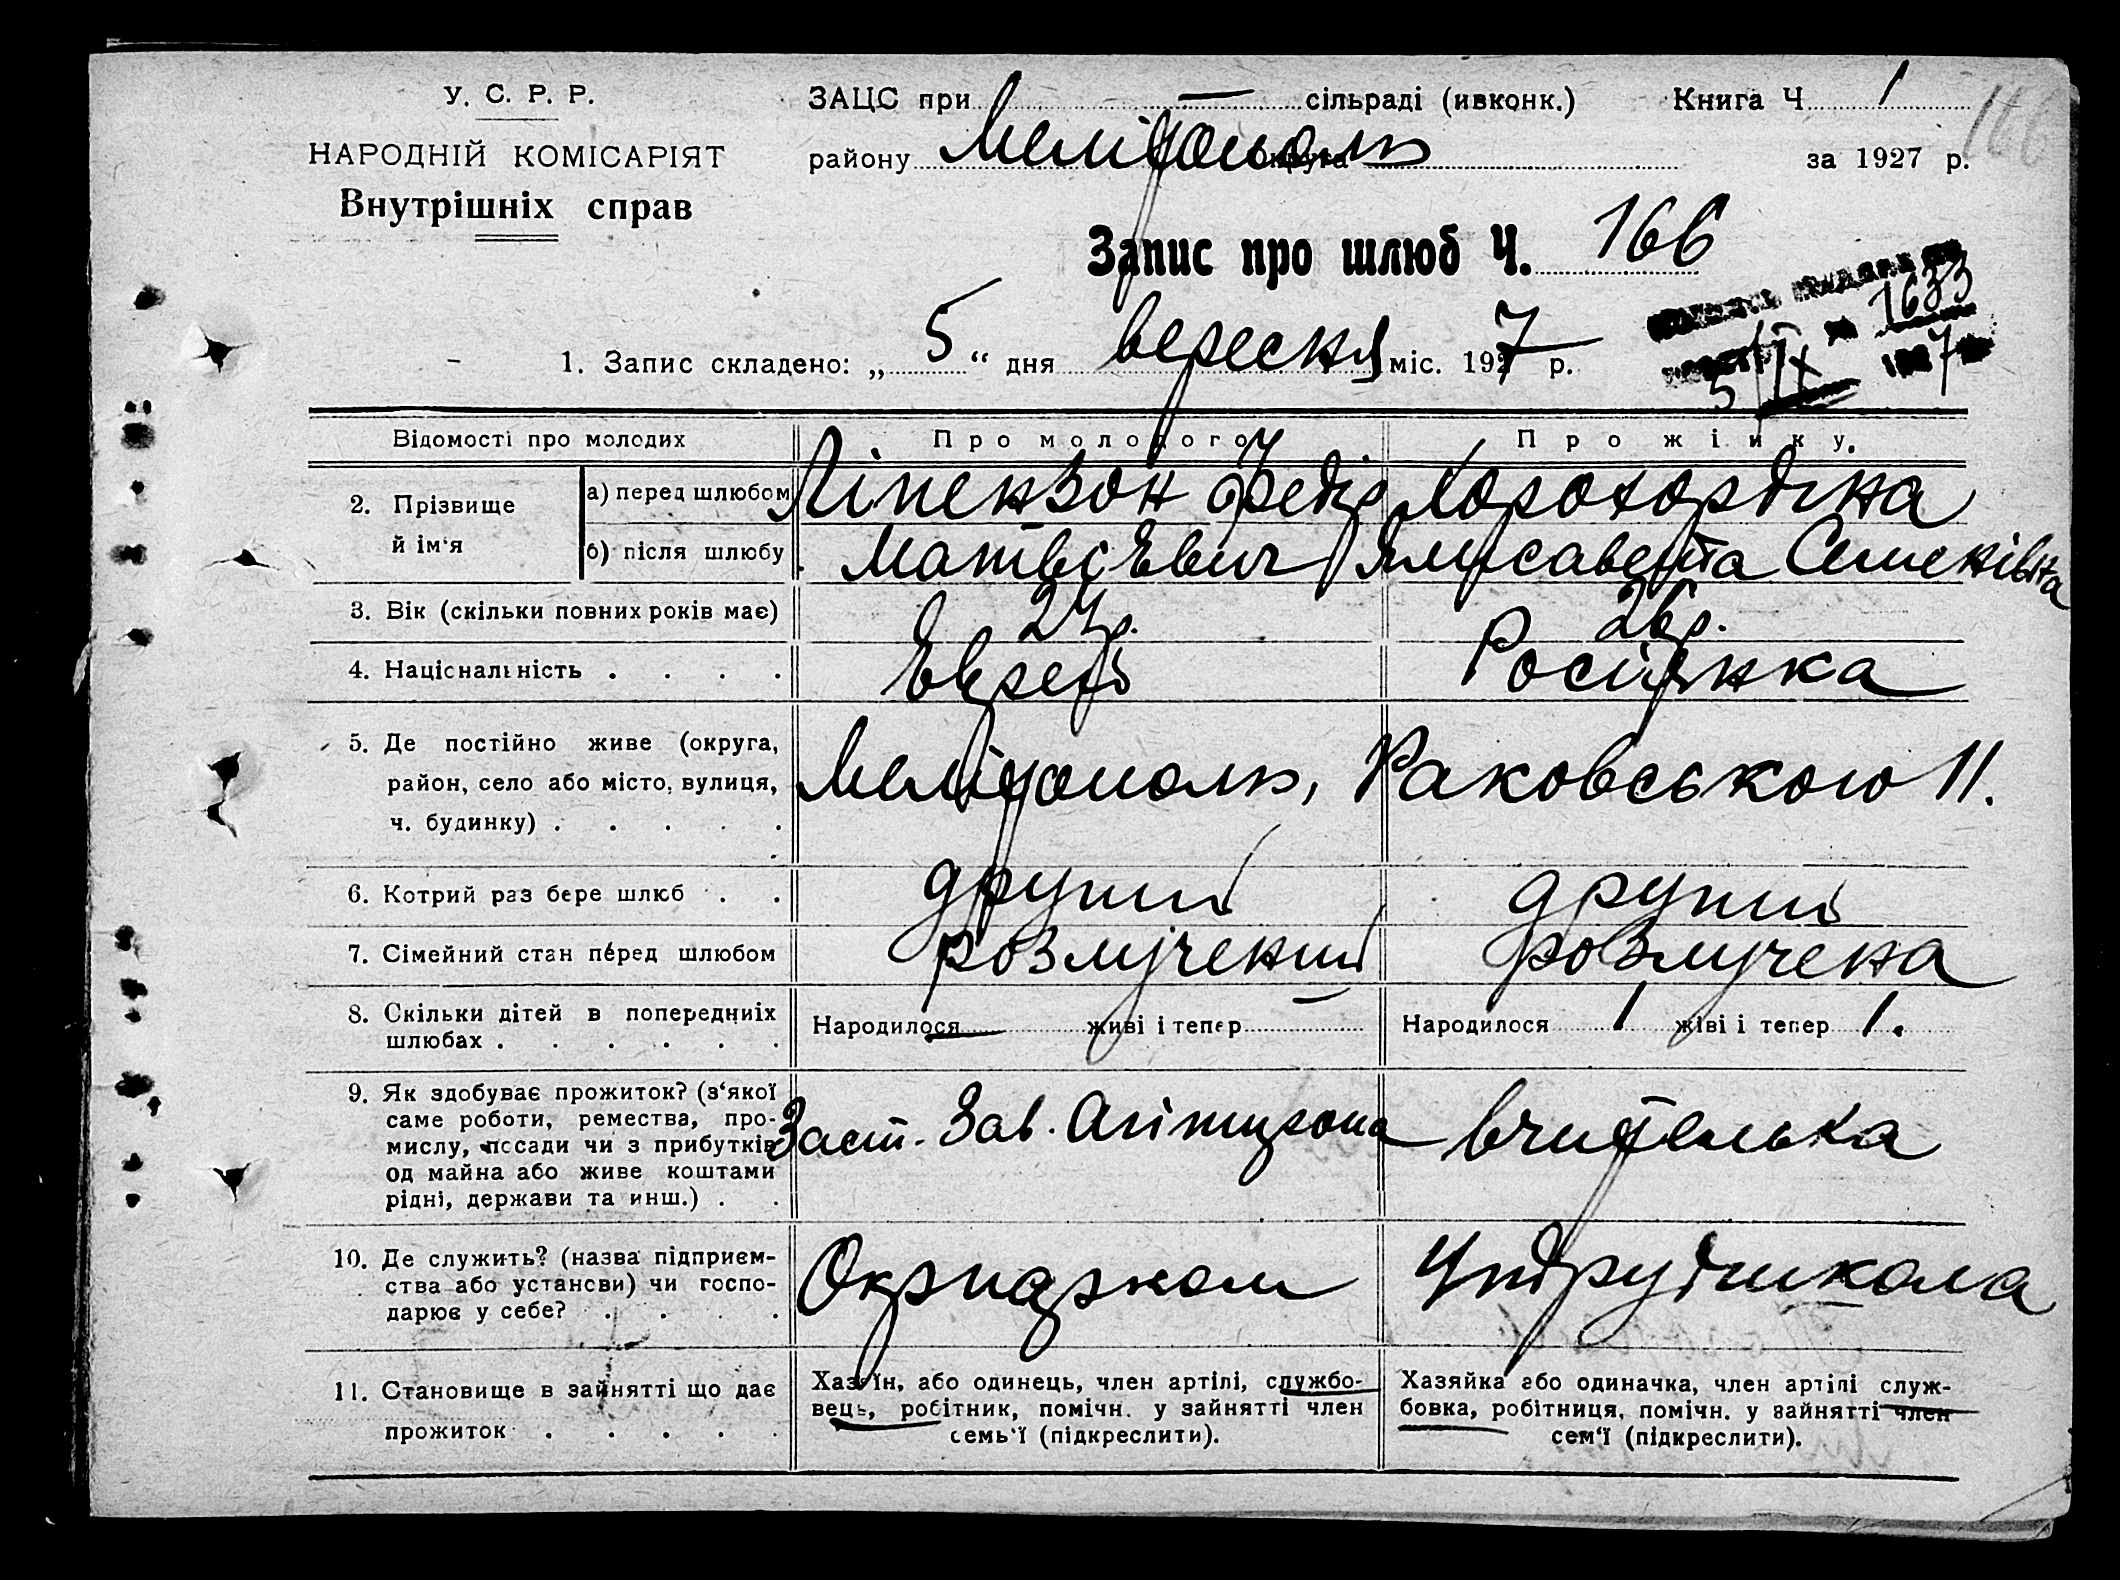 У. С. Р. Р.
НАРОДНІЙ КОМІСАРІЯТ
Внутрішніх справ
ЗАЦС при — сільраді (ивконк.) Книга Ч 1
166
району Мелітополь округа за 1927 р.
Запис про шлюб Ч. 166
1633
5/IX 1927
1. Запис складено: „5“ дня вересня міс. 1927 р.
Відомості про молодих Про молодого Про жінку.
2. Прізвище й ім‘я
а) перед шлюбом Ліпензон Федір
б) після шлюбу Матвієвич Єлисавета Семенівна
3. Вік (скільки повних років має) 24 р. 26 р.
4. Національність . . . . Еврей Росіянка
5. Де постійно живе (округа,
район, село або місто, вулиця,
ч. будинку) . . . . .
Мелітополь, Раковського 11.
6. Котрий раз бере шлюб . . другий другий
7. Сімейний стан перед шлюбом розлучений розлучена
8. Скільки дітей в попередніх
шлюбах . . . . . .
Народилося — живі і тепер — Народилося 1 живі і тепер 1.
9. Як здобуває прожиток? (з‘якої
саме роботи, ремества, про-
мислу, посади чи з прибутків
од майна або живе коштами
рідні, держави та инш.) . .
Заст. Зав. вчителька
10. Де служить? (назва підприєм-
ства або установи) чи госпо-
дарює у себе? . . . .
Окрпарком
11. Становище в зайнятті що дає
прожиток . . . . .
Хазяїн, або одинець, член артілі, службо-
вець, робітник, помічн. у зайнятті член
семь‘ї (підкреслити).
Хазяйка або одиначка, член артілі служ-
бовка, робітниця, помічн. у зайнятті член
сем‘ї (підкреслити).